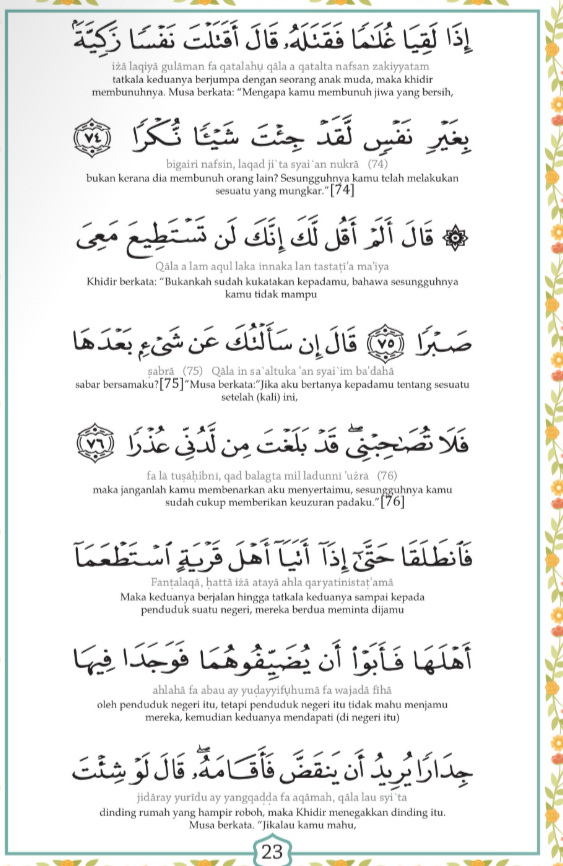 إِذَا لَقِيَا غُلَـٰمًا فَقَتَلَهُۥ قَالَ أَقَتَلْتَ نَفْسًا زَكِيَّةًۢ
iżā laqiyā gulāman fa qatalahụ qāla a qatalta nafsan zakiyyatam
tatkala keduanya berjumpa dengan seorang anak muda, maka khidir
membunuhnya. Musa berkata: “Mengapa kamu membunuh jiwa yang bersih,
بِغَيْرِ نَفْسٍ لَّقَدْ جِئْتَ شَيْـًٔا نُّكْرًا ٧٤
bigairi nafsin, laqad ji`ta syai`an nukrā (74)
bukan kerana dia membunuh orang lain? Sesungguhnya kamu telah melakukan
sesuatu yang mungkar.”[74]
۞ قَالَ أَلَمْ أَقُل لَّكَ إِنَّكَ لَن تَسْتَطِيعَ مَعِىَ
Qāla a lam aqul laka innaka lan tastaṭi'a ma'iya
Khidir berkata: “Bukankah sudah kukatakan kepadamu, bahawa sesungguhnya
kamu tidak mampu
صَبْرًا ٧٥ قَالَ إِن سَأَلْتُكَ عَن شَىْءٍۭ بَعْدَهَا
ṣabrā (75) Qāla in sa`altuka 'an syai`im ba'dahā
sabar bersamaku?[75]“Musa berkata:“Jika aku bertanya kepadamu tentang sesuatu
setelah (kali) ini,
فَلَا تُصَـٰحِبْنِى ۖ قَدْ بَلَغْتَ مِن لَّدُنِّى عُذْرًا ٧٦
fa lā tuṣāḥibnī, qad balagta mil ladunnī 'użrā (76)
maka janganlah kamu membenarkan aku menyertaimu, sesungguhnya kamu
sudah cukup memberikan keuzuran padaku.”[76]
فَٱنطَلَقَا حَتَّىٰٓ إِذَآ أَتَيَآ أَهْلَ قَرْيَةٍ ٱسْتَطْعَمَآ
Fanṭalaqā, ḥattā iżā atayā ahla qaryatinistaṭ'amā
Maka keduanya berjalan hingga tatkala keduanya sampai kepada
penduduk suatu negeri, mereka berdua meminta dijamu
أَهْلَهَا فَأَبَوْا۟ أَن يُضَيِّفُوهُمَا فَوَجَدَا فِيهَا
ahlahā fa abau ay yuḍayyifụhumā fa wajadā fīhā
oleh penduduk negeri itu, tetapi penduduk negeri itu tidak mahu menjamu
mereka, kemudian keduanya mendapati (di negeri itu)
جِدَارًا يُرِيدُ أَن يَنقَضَّ فَأَقَامَهُۥ ۖ قَالَ لَوْ شِئْتَ
jidāray yurīdu ay yangqaḍḍa fa aqāmah, qāla lau syi`ta
dinding rumah yang hampir roboh, maka Khidir menegakkan dinding itu.
Musa berkata. “Jikalau kamu mahu,
23